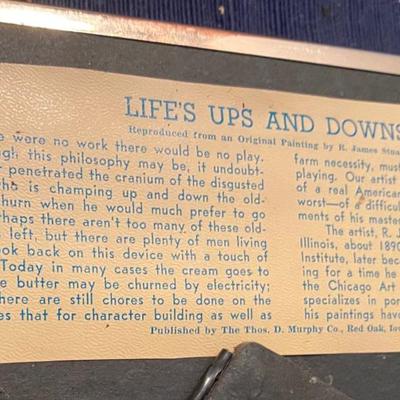 LIFE'S UPS AND DOWNS
Reproduced from an Original Painting by R. James Stua
e were no work there would be no play.
ugh this philosophy may be, it undoubt-
r penetrated the cranium of the disgusted
ho is champing up and down the old-
hurn when he would much prefer to go
haps there aren't too many of these old-
s left, but there are plenty of men living
ook back on this device with a touch of
Today in many cases the cream goes to
e butter may be churned by electricity;
here are still chores to be done on the
es that for character building as well as
farm necessity, must
playing. Our artist
of a real American
worst—of a difficul
ments of his master
The artist, R. J
Illinois, about 1890
Institute, later beca
ing for a time he
the Chicago Art
specializes in por
his paintings have
Published by The Thos. D. Murphy Co., Red Oak, Iow